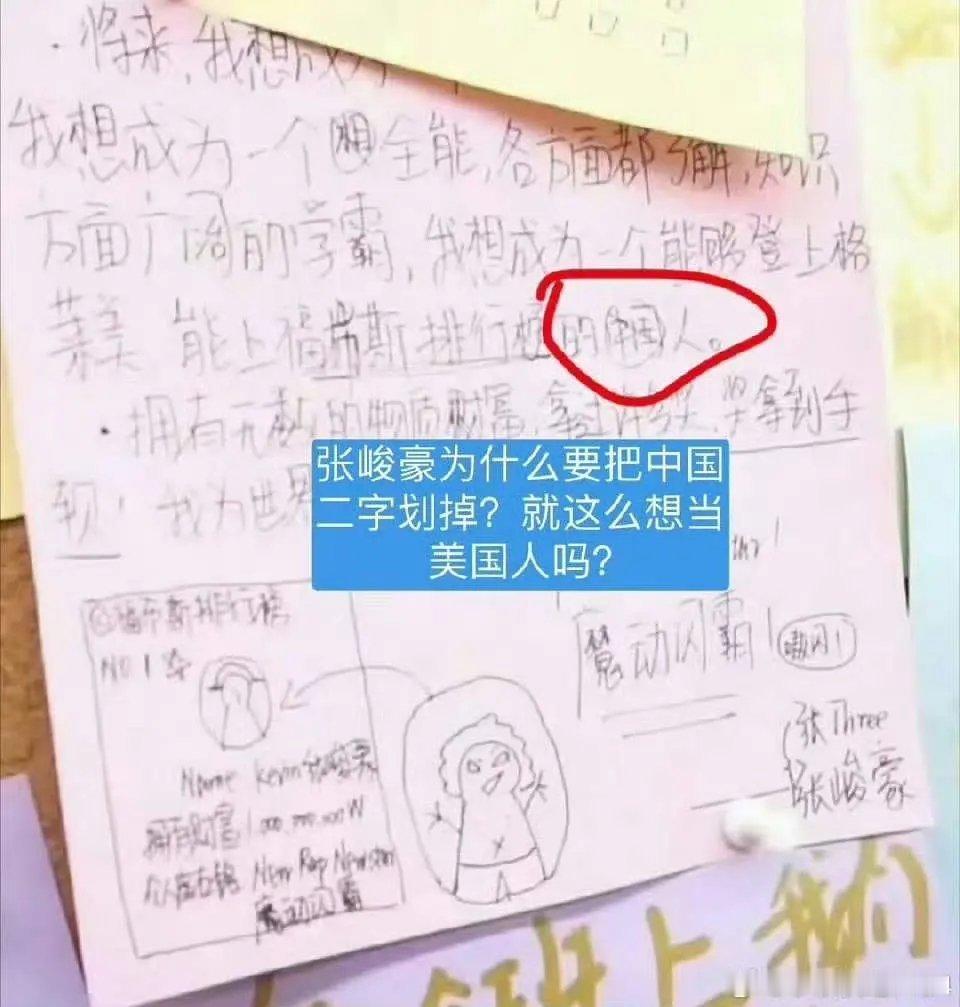 ·将来,我想成为一
我想成为一个全能,各方面都了解,知识
方面广阔的学霸,我想成为一个能够登上格
莱美 能上福布斯排行榜的中国人。
·拥有无数的物质财富,拿到手
软! 我为世界
张峻豪为什么要把中国
二字划掉?就这么想当
美国人吗?
福布斯排行榜
NO.1
魔动闪霸!
张Three
张峻豪
Name Kevin张峻豪
拥有财富 1,000,000,000W
New Rap
魔动闪霸
上我们